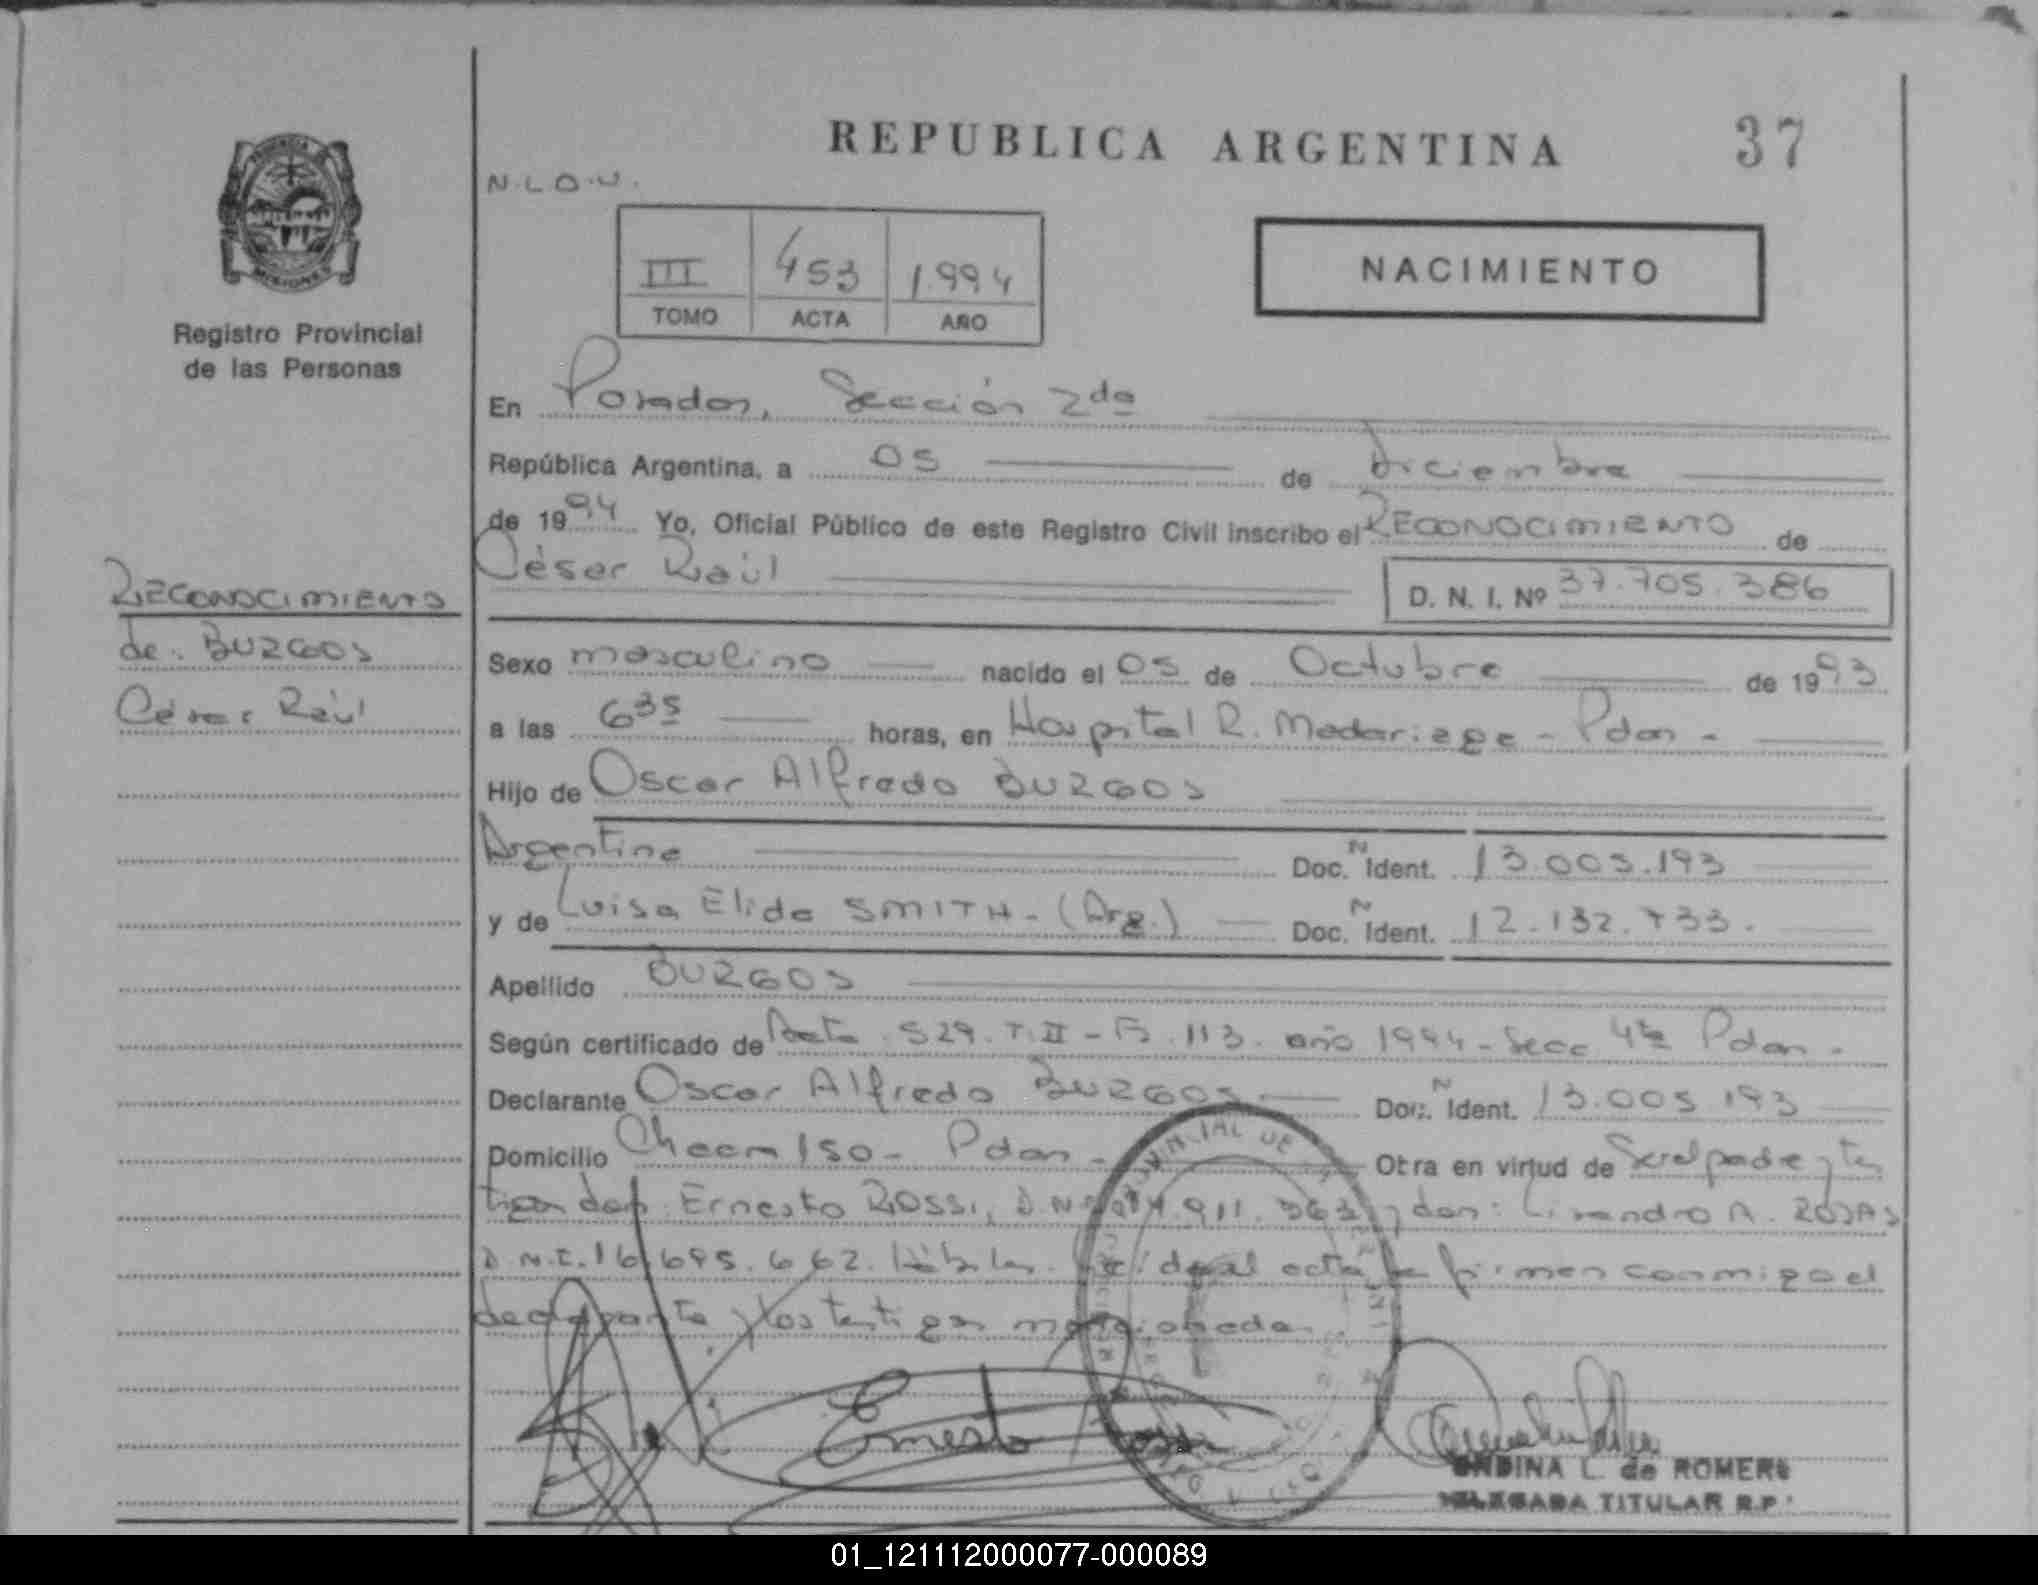 REPUBLICA ARGENTINA
37
N.L.O.U.
III 453 1.994
TOMO ACTA AÑO
NACIMIENTO
Registro Provincial
de las Personas
En Posadas, Sección 2da
República Argentina, a 05 de Diciembre
de 1994 Yo, Oficial Público de este Registro Civil inscribo el RECONOCIMIENTO de
César Raúl
D. N. I. Nº 37.705.386
RECONOCIMIENTO
de: BURGOS
César Raúl
Sexo masculino nacido el 05 de Octubre de 1993
a las 6 35 horas, en Hospital R. Madariaga - Pdas -
Hijo de Oscar Alfredo BURGOS
Argentina Doc. N Ident. 13.005.193
y de Luisa Elida SMITH - (Arg.) Doc. N Ident. 12.132.733.
Apellido BURGOS
Según certificado de Acta 529. T. II - Fº. 113. año 1994 - Secc 4ta Pdas -
Declarante Oscar Alfredo BURGOS Doc. N Ident. 13.005.193
Domicilio Chacra 150 - Pdas - Otra en virtud de Ser el padre y tes
tigos don: Ernesto ROSSI, D.N.I. 911.363 y don: Lisandro A. ROJAS
D.N.I. 16.695.662. acta firman conmigo el
declarante y los testigos mencionados
Ernesto Rossi
ONDINA L. de ROMERO
DELEGADA TITULAR R.P.
01_121112000077-000089